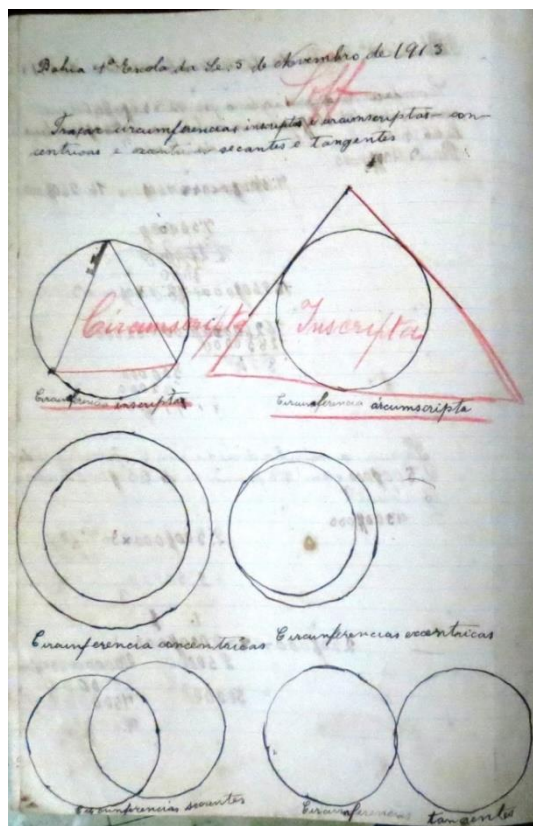 Bahia 4ª Escola da Sé, 5 de Novembro de 1913
Soff
Traçar circumferencias inscriptas e circumscriptas con-
centricas e secantes e tangentes
Circumscripta Inscripta
Circumferencia inscripta Circumferencia circumscripta
Circumferencia concentricas Circumferencias excentricas
Circumferencias secantes Circumferencias tangentes